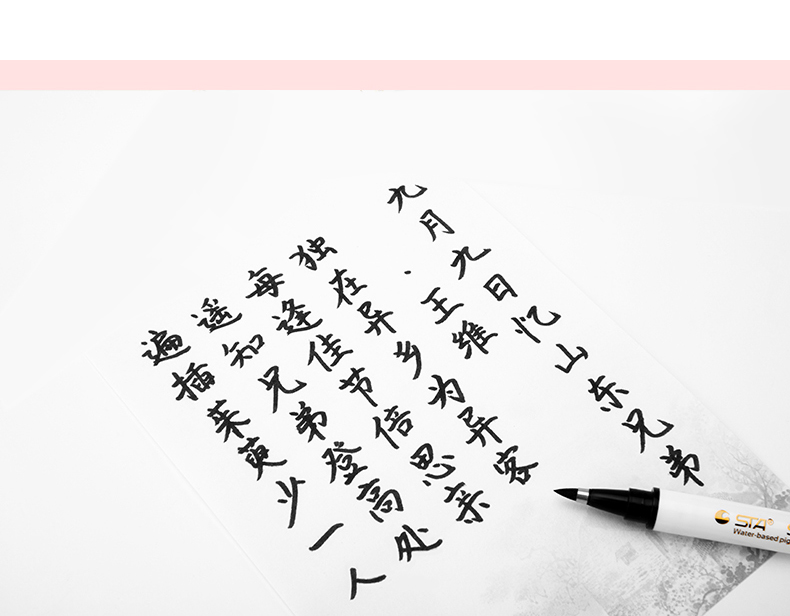 九月九日忆山东兄弟
·王维
独在异乡为异客
每逢佳节倍思亲
遥知兄弟登高处
遍插茱萸少一人
STA®
Water-based pig